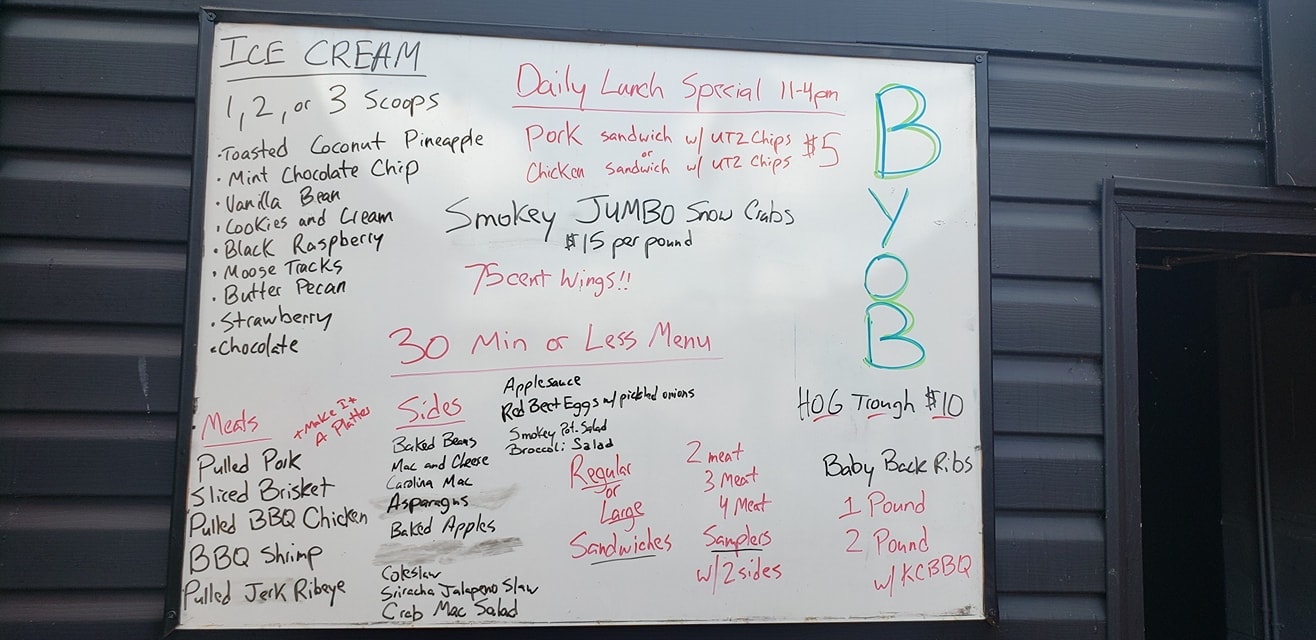 ICE CREAM
1, 2, or 3 Scoops
• Toasted Coconut Pineapple
• Mint Chocolate Chip
• Vanilla Bean
• Cookies and Cream
• Black Raspberry
• Moose Tracks
• Butter Pecan
• Strawberry
• Chocolate
Daily Lunch Special 11-4pm
Pork sandwich w/ UTZ Chips $5
or
Chicken sandwich w/ UTZ Chips
Smokey JUMBO Snow Crabs
$15 per pound
75 cent Wings!!
B
Y
O
B
30 Min or Less Menu
Meats
+Make It
A Platter
Pulled Pork
Sliced Brisket
Pulled BBQ Chicken
BBQ Shrimp
Pulled Jerk Ribeye
Sides
Baked Beans
Mac and Cheese
Carolina Mac
Asparagus
Baked Apples
Coleslaw
Sriracha Jalapeno Slaw
Crab Mac Salad
Applesauce
Red Beet Eggs w/ pickled onions
Smokey Pot. Salad
Broccoli Salad
Regular
or
Large
Sandwiches
2 meat
3 Meat
4 Meat
Samplers
w/ 2 sides
HOG Trough $10
Baby Back Ribs
1 Pound
2 Pound
w/ KCBBQ